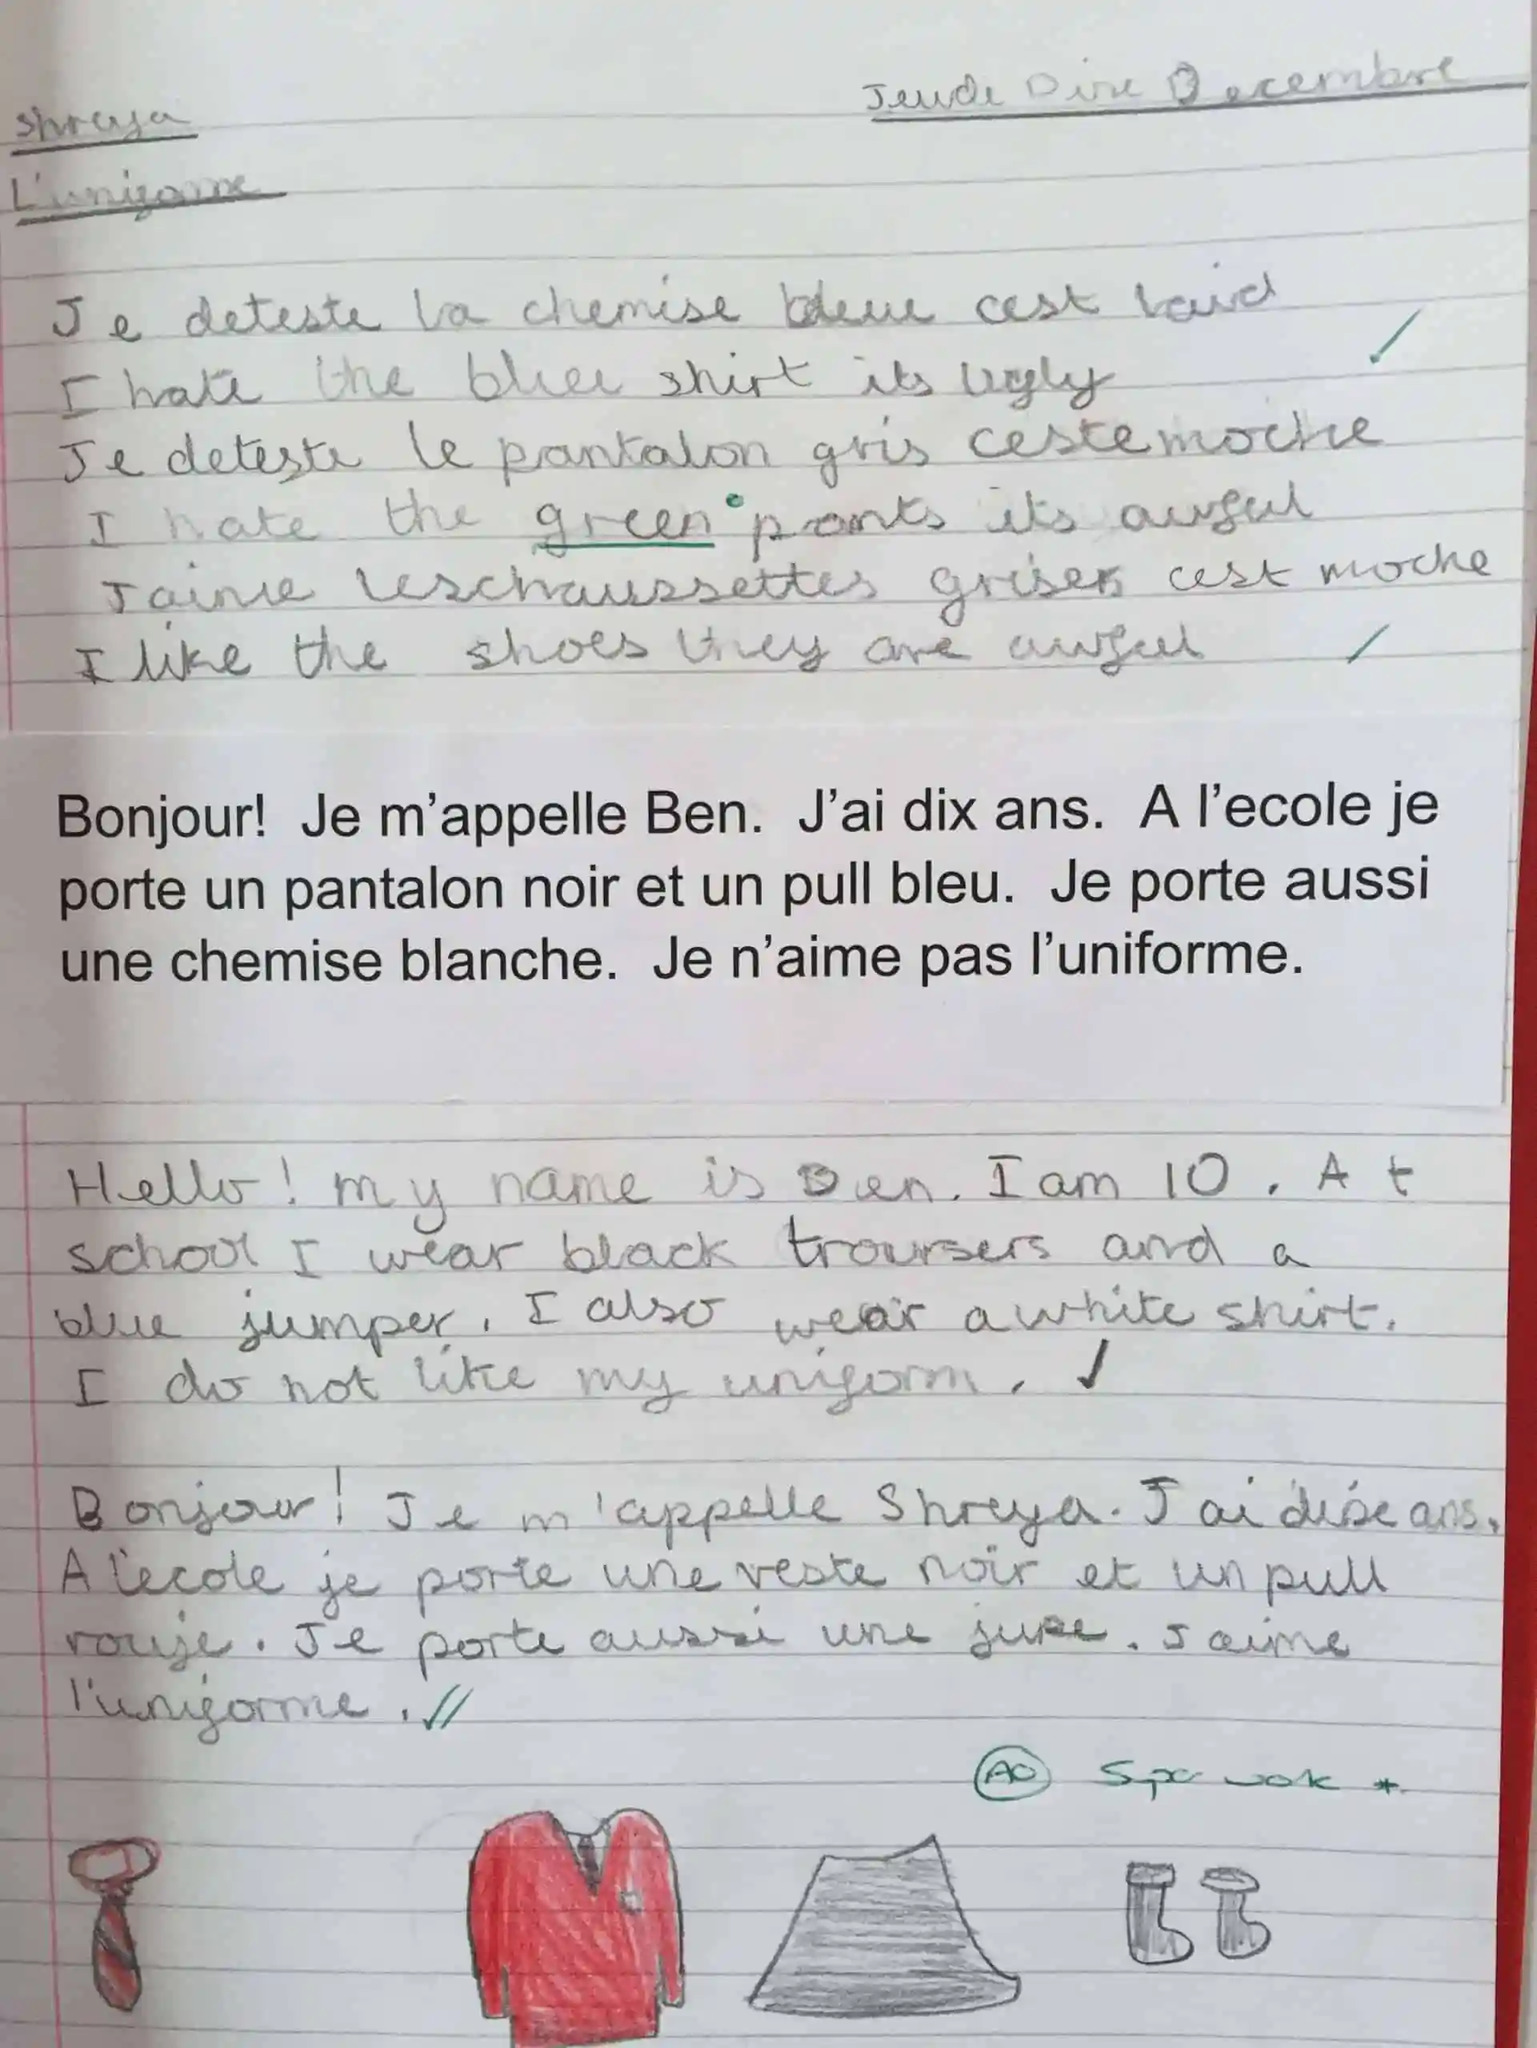 Shreya
Jeudi Dixe Decembre
L'uniforme
Je deteste la chemise bleue cest laid
I hate the bluee shirt its ugly
Je deteste le pantalon gris ceste moche
I hate the green pants its awful
Jaime leschaussettes grises cest moche
I like the shoes they are awful
Bonjour! Je m'appelle Ben. J'ai dix ans. A l'ecole je
porte un pantalon noir et un pull bleu. Je porte aussi
une chemise blanche. Je n'aime pas l'uniforme.
Hello! my name is Ben. I am 10. At
school I wear black troursers and a
blue jumper. I also wear a white shirt.
I do not like my uniform.
Bonjour! Je m'appelle Shreya. J'ai ans.
A l'ecole je porte une veste noir et un pull
rouje. Je porte aussi une jupe. J aime
l'uniforme.
AO